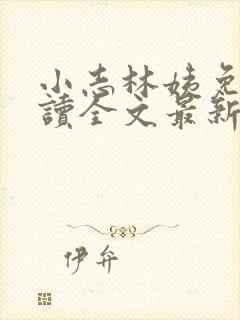 小志林姨免
讀全文最新
伊弁